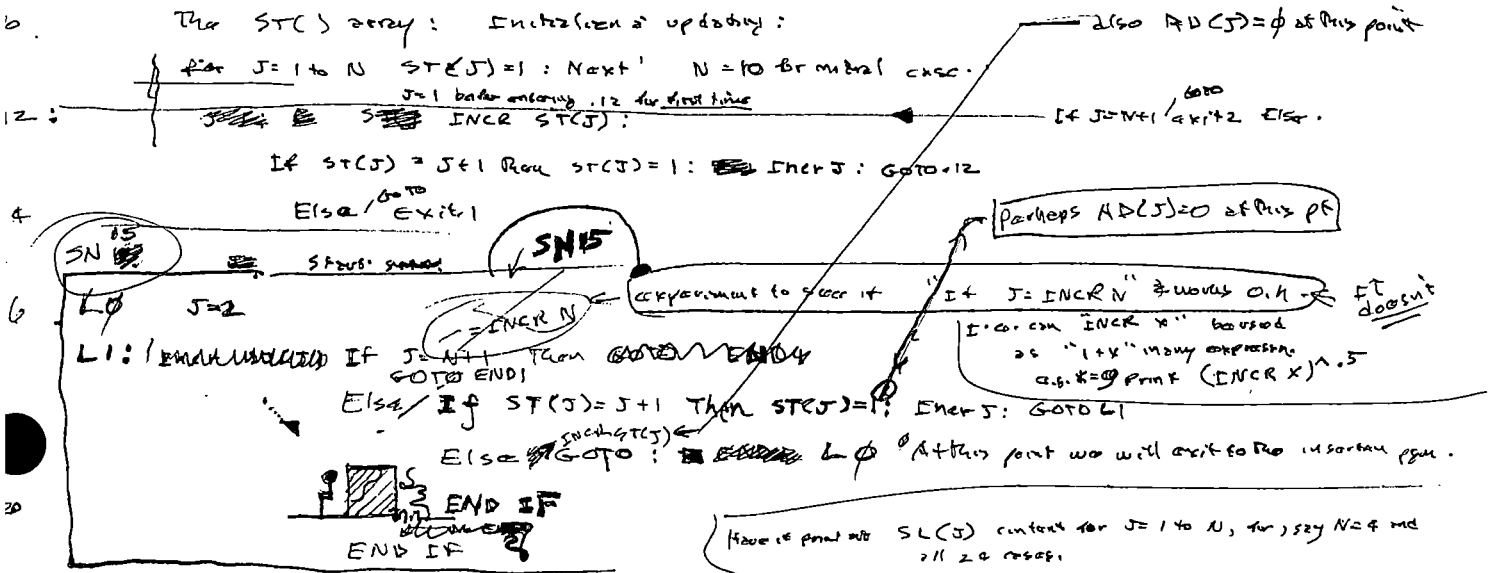 The ST( ) array : Initializena updating :
also AD(J)=φ at this point
for J=1 to N ST(J)=1 : Next' N=10 for initial case.
J=1 before entering .12 for first time
12 : INCR ST(J) :
If J=N+1 / GOTO exit 2 Else.
If ST(J) = J+1 Then ST(J)=1 : Incr J : GOTO .12
Else / GOTO Exit 1
perhaps AD(J)=0 at this pt
SN 15
SN15
LΦ J=2
= INCR N
experiment to see if "If J=INCR N" works o.k. ← IT doesn't
I.e. can "INCR X" be used
as "1+X" in any expression.
e.g. X=9 print (INCR X)^.5
L1: If J=N+1 Then
GOTO END1
Else / If ST(J)=J+1 Then ST(J)=1: Incr J: GOTO L1
INCR ST(J)
Else GOTO : LΦ At this point we will exit to the insertion pgm.
END IF
END IF
Have it print out SL(J) content for J=1 to N, for, say N=4 and
all 24 cases.